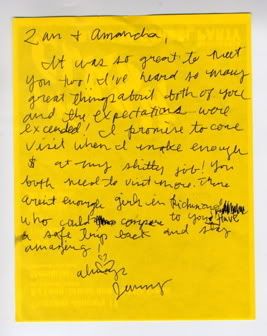 Zan & Amanda,
It was so great to meet
you two! I've heard so many
great things about both of you
and the expectations were
exceeded! I promise to come
visit when I make enough
$ at my shitty job! You
both need to visit more. There
arent enough girls in Richmond
who can compare to you! Have
a safe trip back and stay
amazing!
always
Jenny